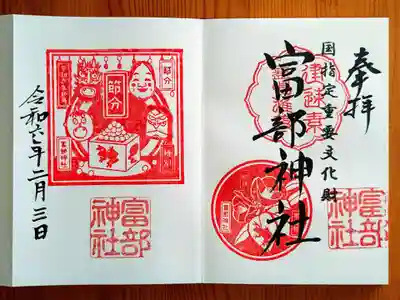 奉拝
国指定重要文化財
富部神社
富部
神社
節分
節分
富部
神社
令和六年二月三日